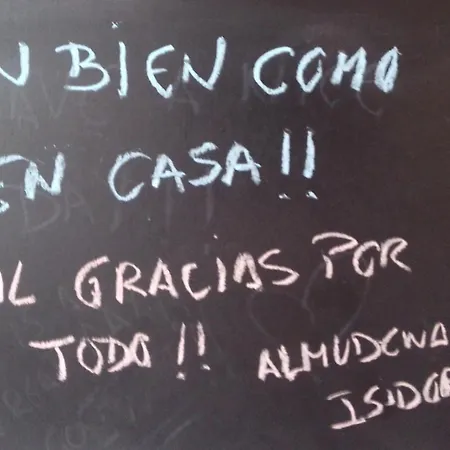 N BIEN COMO
EN CASA!!
IL GRACIAS POR
TODO!! ALMUDENA
ISIDOR